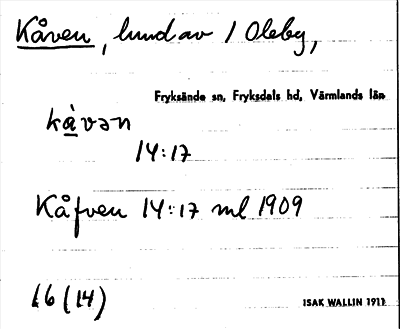 Kåven, hmd av 1 Oleby,
Fryksände sn, Fryksdals hd, Värmlands län
kåvən
14:17
Kåfven 14:17 ml 1909
16 (14)
ISAK WALLIN 1911